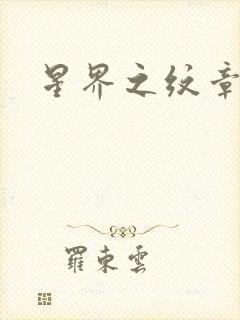 星界之纹章
羅東雲